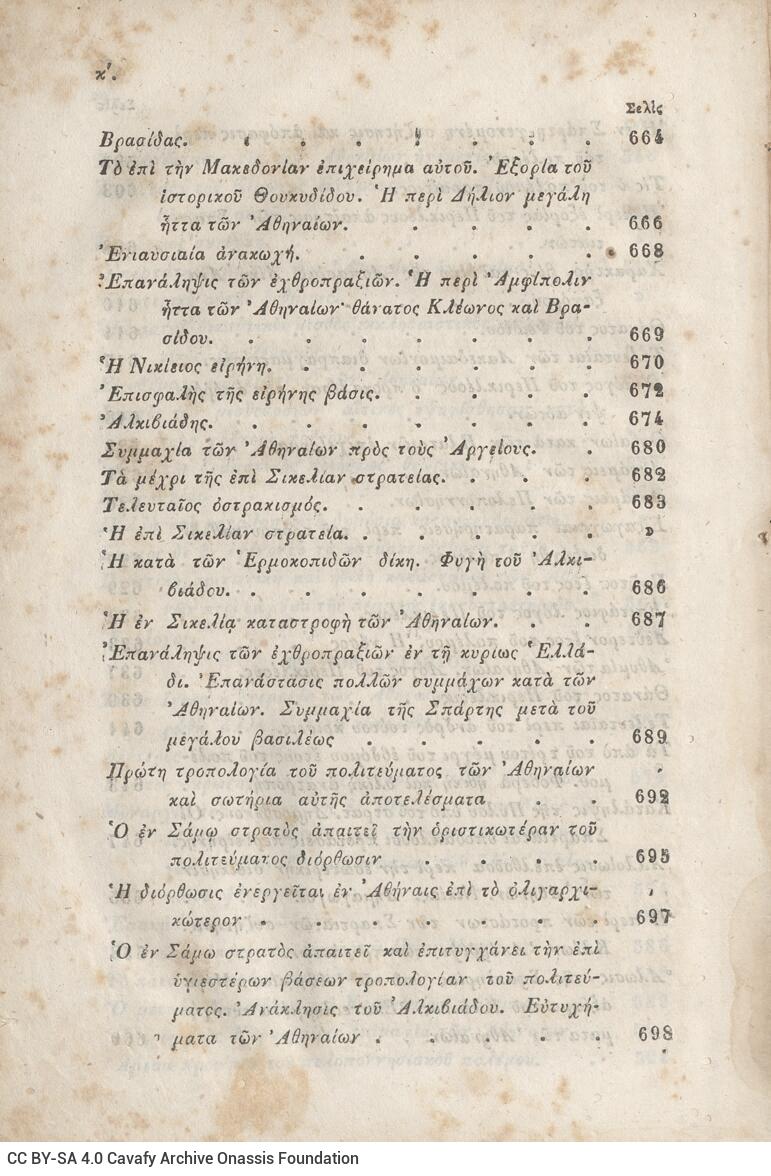 κ'.
Σελὶς
Βρασίδας. . . . . . . 664
Τὸ ἐπὶ τὴν Μακεδονίαν ἐπιχείρημα αὐτοῦ. Ἐξορία τοῦ
ἱστορικοῦ Θουκυδίδου. Ἡ περὶ Δήλιον μεγάλη
ἧττα τῶν Ἀθηναίων. . . . . 666
Ἐνιαυσιαία ἀνακωχή. . . . . . 668
Ἐπανάληψις τῶν ἐχθροπραξιῶν. Ἡ περὶ Ἀμφίπολιν
ἧττα τῶν Ἀθηναίων· θάνατος Κλέωνος καὶ Βρα-
σίδου. . . . . . . . 669
Ἡ Νικίειος εἰρήνη. . . . . . . 670
Ἐπισφαλὴς τῆς εἰρήνης βάσις. . . . . 672
Ἀλκιβιάδης. . . . . . . . 674
Συμμαχία τῶν Ἀθηναίων πρὸς τοὺς Ἀργείους. . 680
Τὰ μέχρι τῆς ἐπὶ Σικελίαν στρατείας. . . . 682
Τελευταῖος ὀστρακισμός. . . . . . 683
Ἡ ἐπὶ Σικελίαν στρατεία. . . . . . »
Ἡ κατὰ τῶν Ἑρμοκοπιδῶν δίκη. Φυγὴ τοῦ Ἀλκι-
βιάδου. . . . . . . . 686
Ἡ ἐν Σικελίᾳ καταστροφὴ τῶν Ἀθηναίων. . . 687
Ἐπανάληψις τῶν ἐχθροπραξιῶν ἐν τῇ κυρίως Ἑλλά-
δι. Ἐπανάστασις πολλῶν συμμάχων κατὰ τῶν
Ἀθηναίων. Συμμαχία τῆς Σπάρτης μετὰ τοῦ
μεγάλου βασιλέως . . . . . 689
Πρώτη τροπολογία τοῦ πολιτεύματος τῶν Ἀθηναίων
καὶ σωτήρια αὐτῆς ἀποτελέσματα . . 692
Ὁ ἐν Σάμῳ στρατὸς ἀπαιτεῖ τὴν ὁριστικωτέραν τοῦ
πολιτεύματος διόρθωσιν . . . . 695
Ἡ διόρθωσις ἐνεργεῖται ἐν Ἀθήναις ἐπὶ τὸ ὀλιγαρχι-
κώτερον . . . . . . . 697
Ὁ ἐν Σάμῳ στρατὸς ἀπαιτεῖ καὶ ἐπιτυγχάνει τὴν ἐπὶ
ὑγιεστέρων βάσεων τροπολογίαν τοῦ πολιτεύ-
ματος. Ἀνάκλησις τοῦ Ἀλκιβιάδου. Εὐτυχή-
ματα τῶν Ἀθηναίων . . . . . 698
CC BY-SA 4.0 Cavafy Archive Onassis Foundation